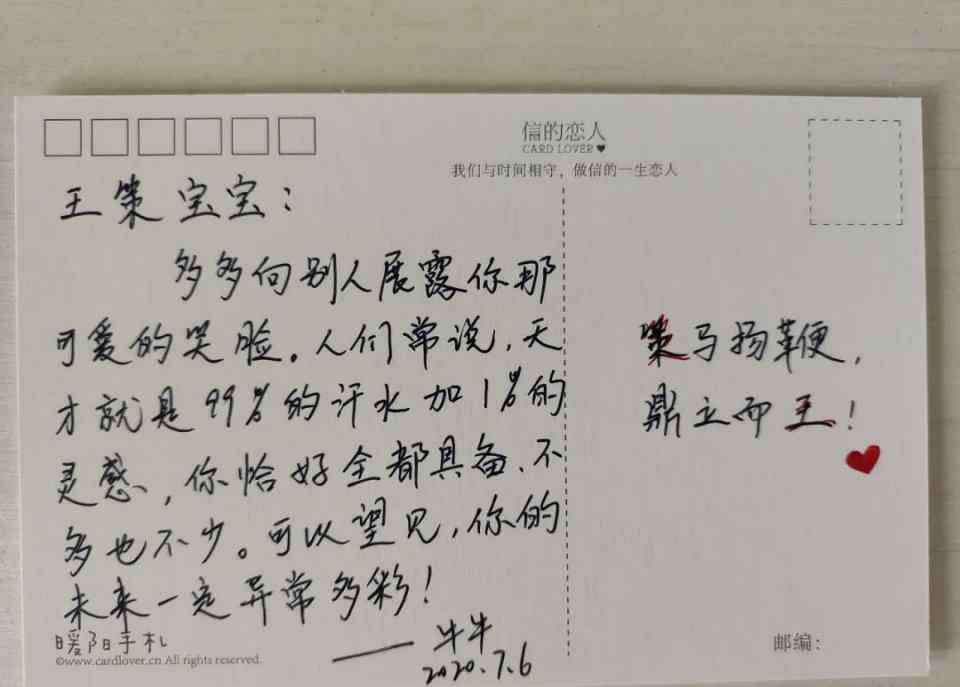 信的恋人
CARD LOVER
我们与时间相守，做信的一生恋人
王策宝宝：
多多向别人展露你那
可爱的笑脸。人们常说，天
才就是99%的汗水加1%的
灵感，你恰好全都具备、不
多也不少。可以望见，你的
未来一定异常多彩！
——牛牛
2020.7.6
策马扬鞭，
鼎立而王！
暖阳手札
©www.cardlover.cn All rights reserved.
邮编：